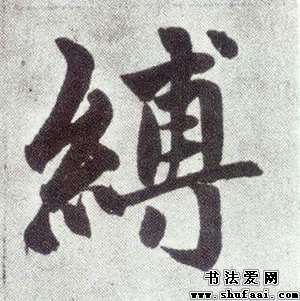 縛
书法爱网
www.shufaai.com